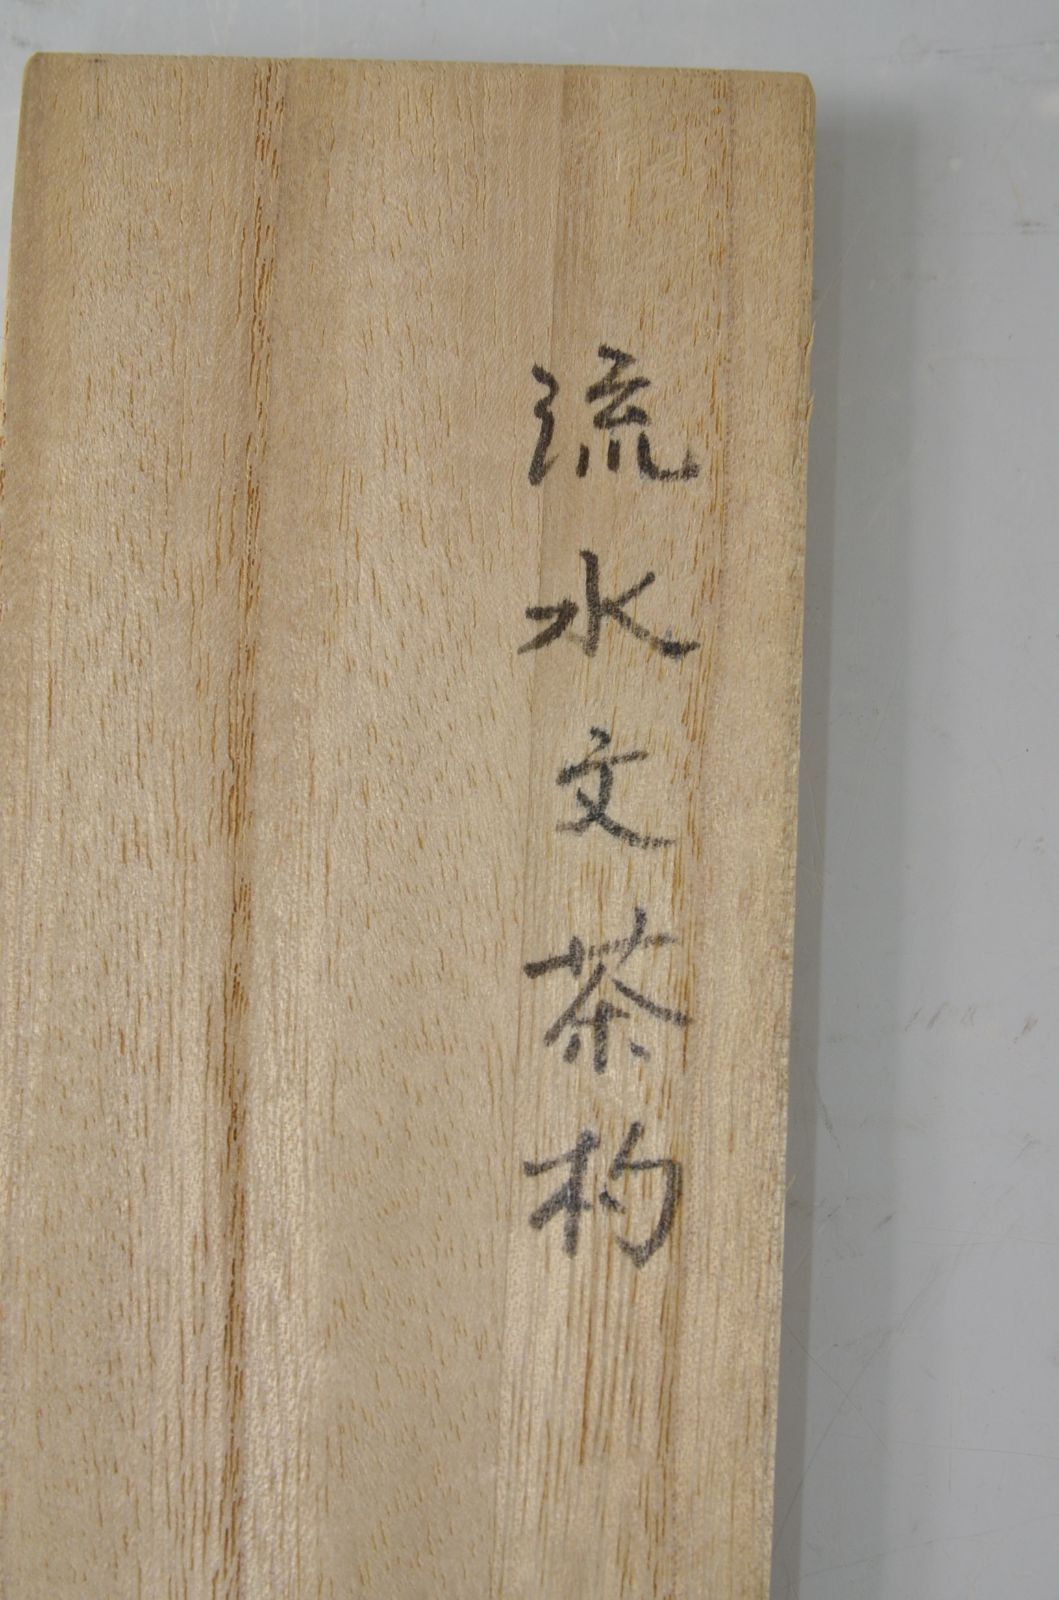 流水文茶杓